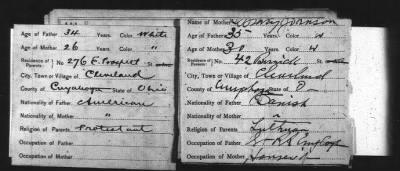 Age of Father 34 Years. Color White
Age of Mother 26 Years. Color "
Residence of Parents No 276 E. Prospect St
City, Town or Village of Cleveland
County of Cuyahoga State of Ohio
Nationality of Father American
Nationality of Mother "
Religion of Parents Protestant
Occupation of Father
Occupation of Mother
Name of Mother Johnson
Age of Father 35 Years. Color W
Age of Mother 30 Years. Color W
Residence of Parents No. 42 St
City, Town or Village of Cleveland
County of State of O
Nationality of Father Danish
Nationality of Mother "
Religion of Parents Lutheran
Occupation of Father
Occupation of Mother